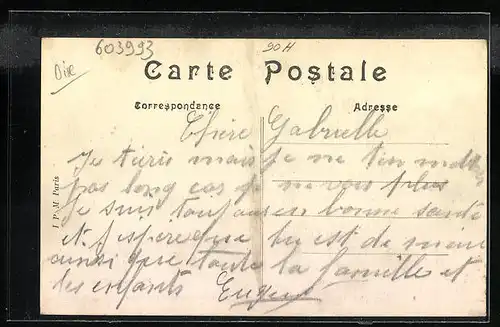 603993
90H
Oise
Carte Postale
Correspondance
Adresse
Chère Gabrielle
Je técris mais je ne ten mets
pas long car je ne vois plus
Je suis toujours en bonne santé
et jespere que tu est de même
ainsi que toute la famille et
des enfants Eugene
I. P. M. Paris